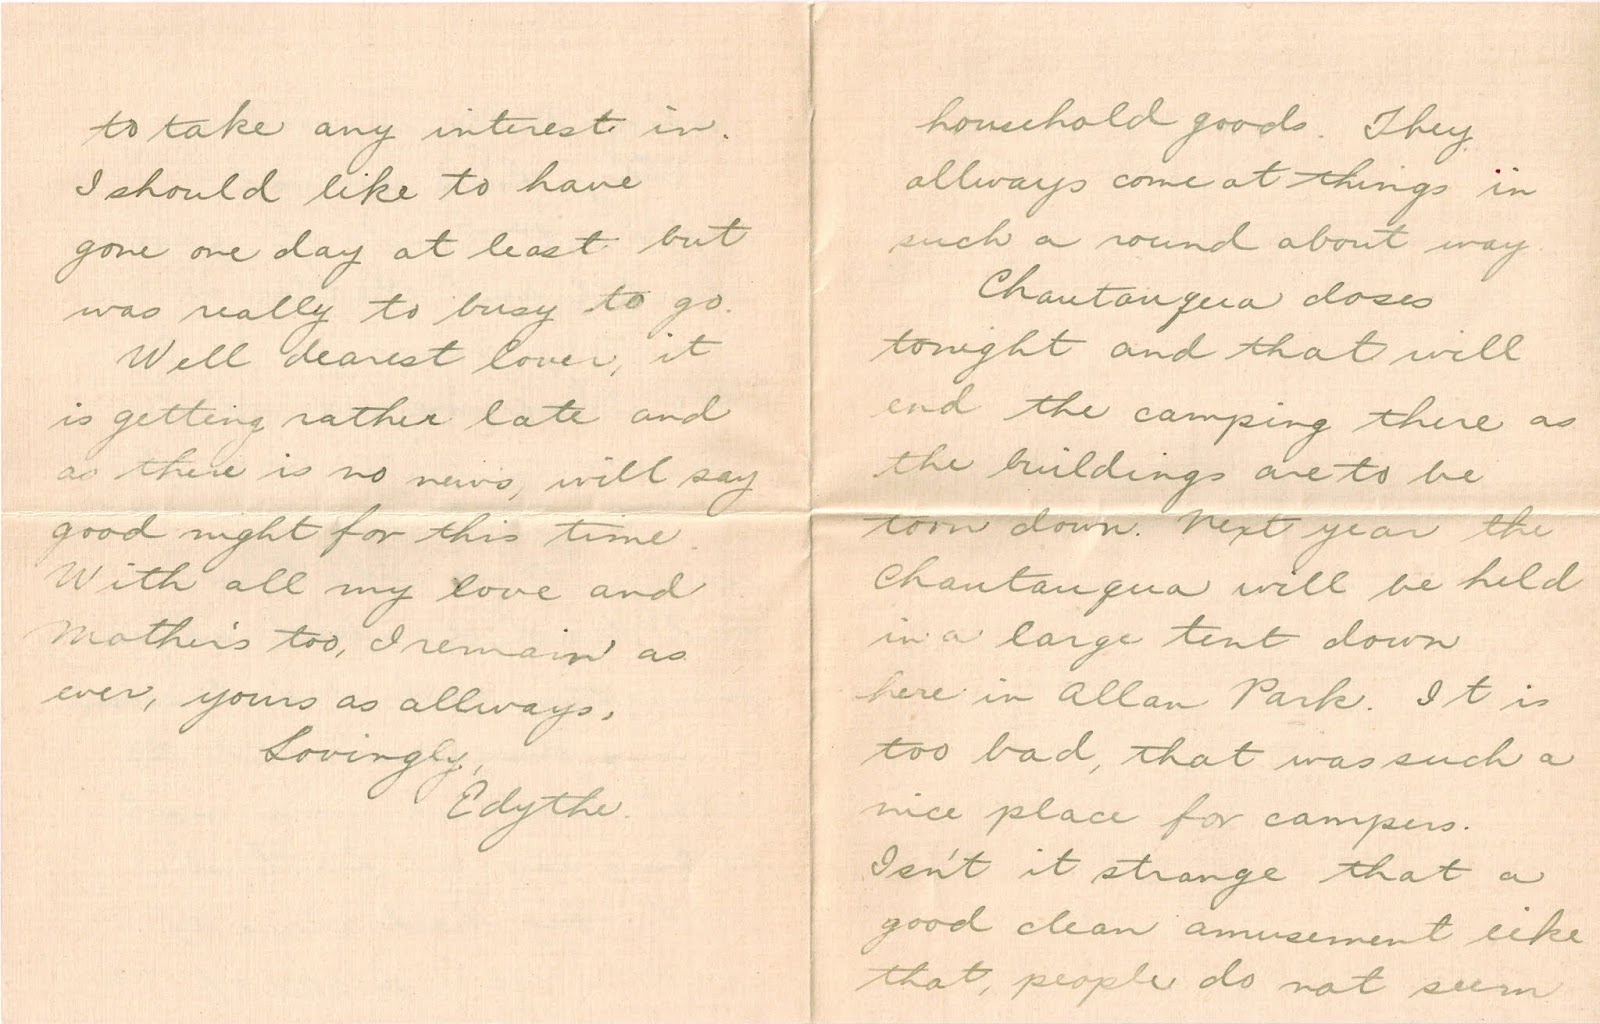 household goods. They
allways come at things in
such a round about way.
Chautauqua closes
tonight and that will
end the camping there as
the buildings are to be
torn down. Next year the
Chautauqua will be held
in a large tent down
here in Allan Park. It is
too bad, that was such a
nice place for campers.
Isn't it strange that a
good clean amusement like
that, people do not seem
to take any interest in.
I should like to have
gone one day at least but
was really to busy to go.
Well dearest lover, it
is getting rather late and
as there is no news, will say
good night for this time.
With all my love and
Mother's too, I remain as
ever, yours as allways,
Lovingly,
Edythe.